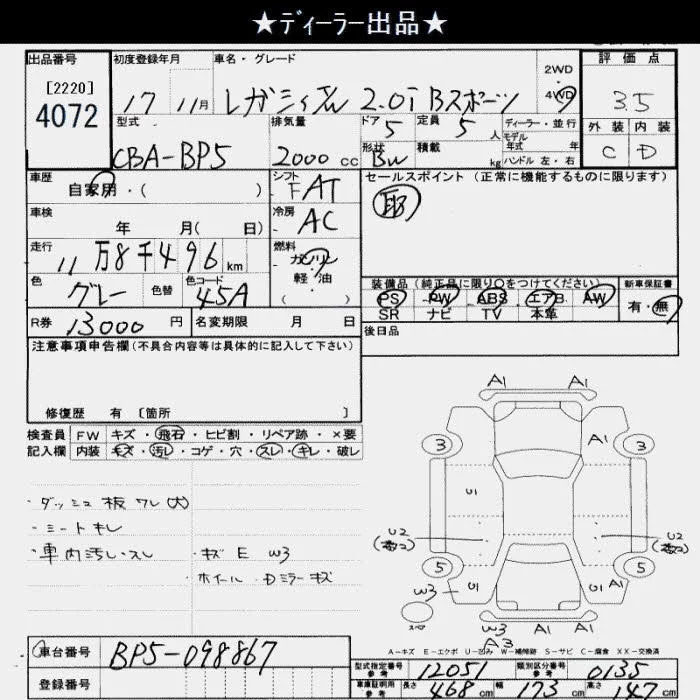 ★ディーラー出品★
出品番号 初度登録年月 車名・グレード 2WD 4WD 評価点
[2220] 4072 17 11月 レガシィ 2.0i Bスポーツ 3.5
型式 排気量 ドア 定員 ディーラー・並行 外装 内装
CBA-BP5 2000cc 5 5人 モデル年式 年 C D
形状 BW 積載 kg ハンドル 左・右
車歴 シフト セールスポイント (正常に機能するものに限ります)
自家用・( ) FAT
車検 冷房
年 月( 日) AC
走行 燃料
11万8千496km ガソリン
色 色替 色コード 軽・油 装備品 (純正品に限り○をつけてください) 新車保証書
グレー 45A ・( ) PS PW ABS エアB. AW 有・無
SR ナビ TV 本革
R券 13000円 名変期限 月 日 後日品
注意事項申告欄 (不具合内容等は具体的に記入して下さい)
修復歴 有 〔箇所 〕
検査員 FW キズ・飛石・ヒビ割・リペア跡・×要
記入欄 内装 キズ・汚レ・コゲ・穴・スレ・キレ・破レ
・ダッシュ板 ワレ(大)
・シートキレ
・車内汚レ・スレ ・キズ E W3
・ホイール・Dミラーキズ
A1 A1
3 A1 3
U1
U2 U2
5 5
W3 U1 U1 A1
W3 A1 A1
A3
A-キズ E-エクボ U-凹み W-補修跡 S-サビ C-腐食 XX-交換済
車台番号 BP5-098867
登録番号
型式指定番号 参考 12051 類別区分番号 参考 0135
車庫証明用 参考 長さ 468cm 幅 173cm 高さ 147cm